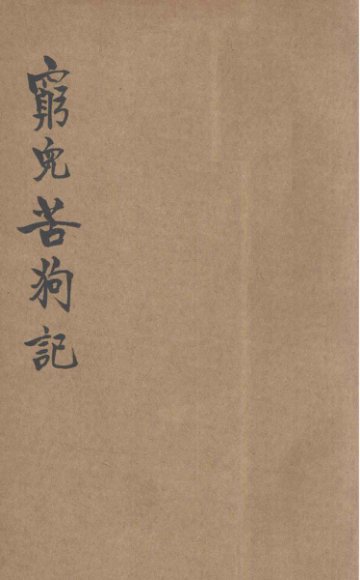 窮兒苦狗記